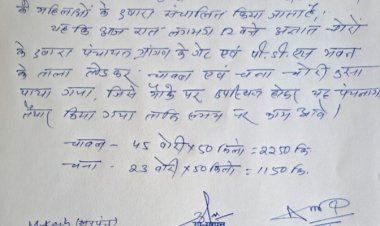 की महिलाओं के द्वारा संचालित किया जाता है,
यह कि आज रात लगभग 12 बजे अज्ञात चोरों
के द्वारा पंचायत प्रांगण के गेट एवं पी.डी.एस भवन
के ताला तोड़कर चावल एवं चना चोरी होना
पाया गया, जिसे मौके पर उपस्थित होकर यह पंचनामा
तैयार किया गया ताकि समय पर काम आवे।
चावल - 45 बोरी × 50 किलो = 2250 कि.
चना - 23 बोरी × 50 किलो = 1150 कि.
(सरपंच)